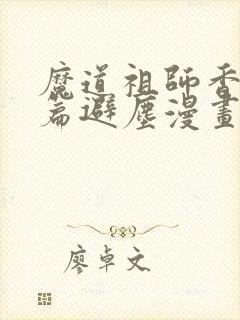 魔道祖師香
篇避塵漫畫
廖卓文